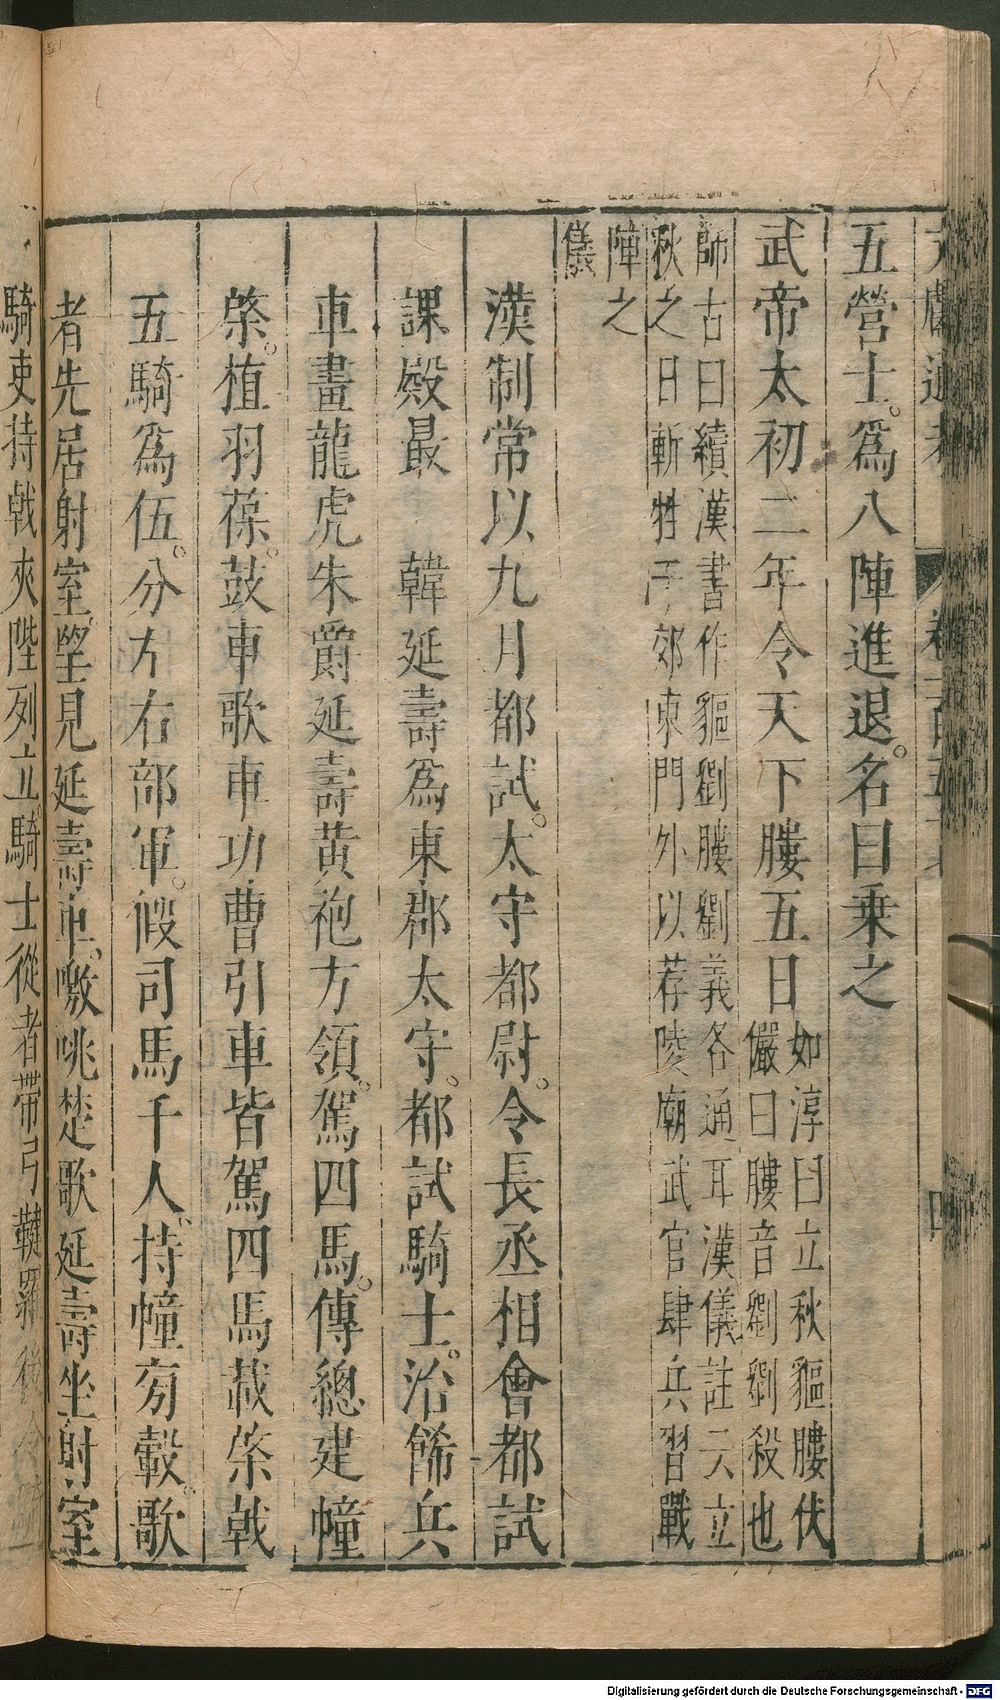 五營士爲八陣進退名曰乗之
武帝太初二年令天下膢五日如淳曰立秋貙膢伏
儼曰膢音劉劉殺也
師古曰續漢書作貙劉膢劉義各通耳漢儀註云立
秋之日斬牲于郊東門外以荐陵廟武官肆兵習戰
陣之
儀
漢制常以九月都試太守都尉令長丞相會都試
課殿最　韓延壽爲東郡太守都試騎士治餙兵
車畫龍虎朱爵延壽黄袍方領駕四馬傳總建幢
棨植羽葆鼓車歌車功曹引車皆駕四馬裁棨戟
五騎爲伍分左右部軍假司馬千人持幢旁轂歌
者先居射室望見延壽車噭咷楚歌延壽坐射室
騎吏持戟夾陛列立騎士從者帶弓鞬羅後令
Digitalisierung gefördert durch die Deutsche Forschungsgemeinschaft - DFG